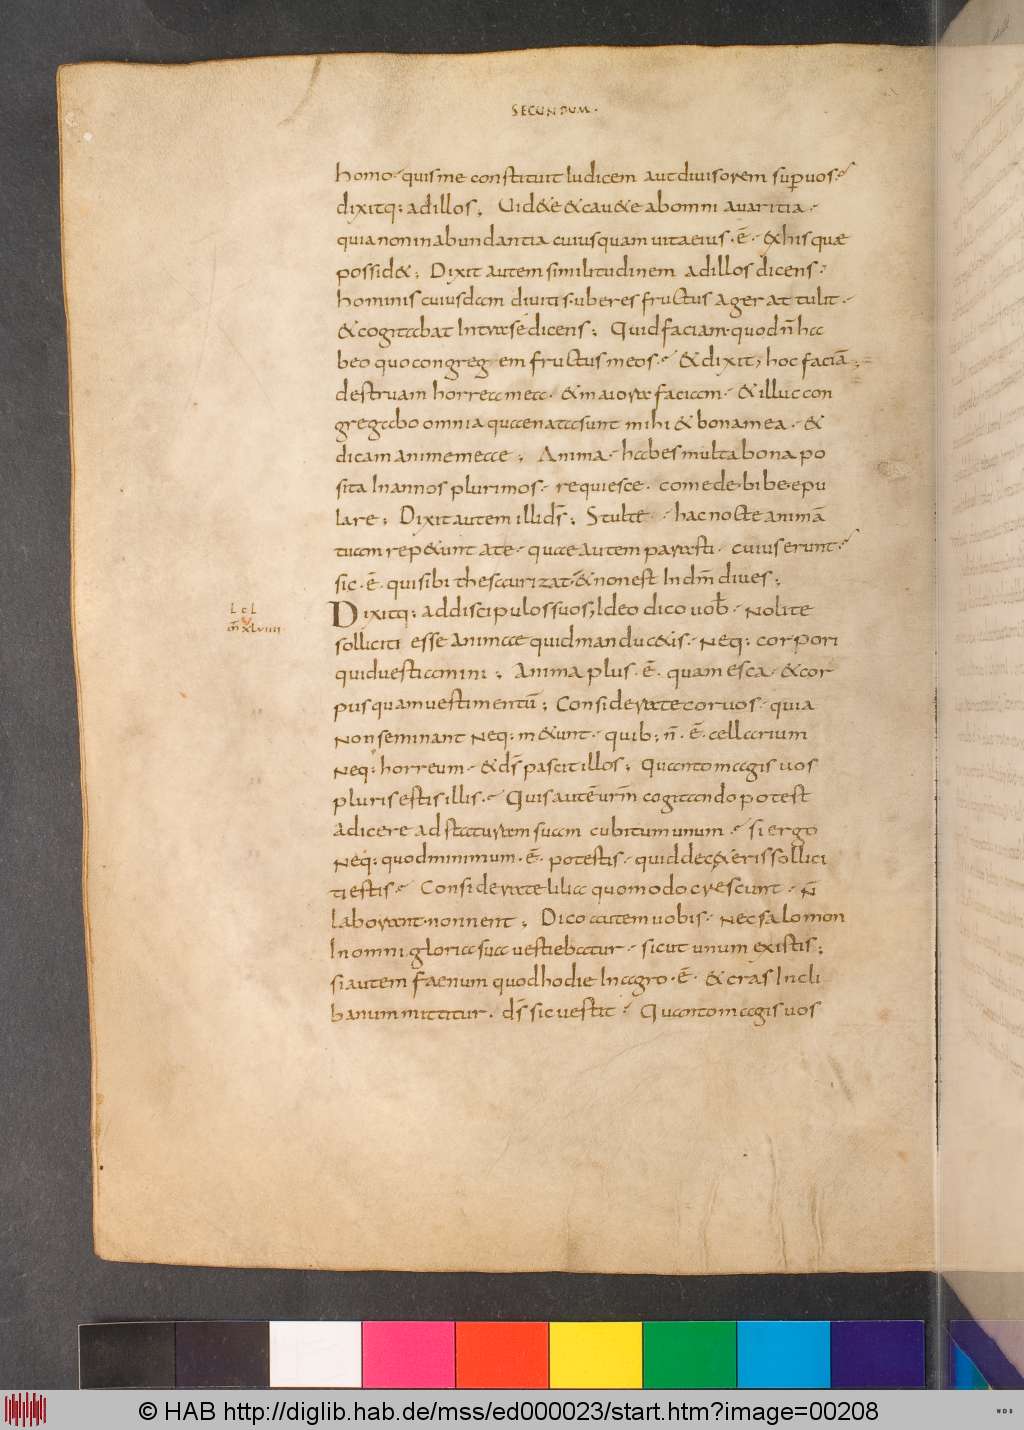 SECUNDUM·
homo· quis me constituit Iudicem aut diuisorem sup uos·
dixitq: ad illos; Uidete & cauete ab omni auaritia·
quia non in abundantia cuiusquam uita eius·ē· & his quae
possid&; Dixit autem similitudinem ad illos dicens·
hominis cuiusdam diuitis uberes fructus ager attulit·
& cogitabat Intra se dicens; Quid faciam· quod n̄ ha
beo quo congreg em fructus meos· & dixit, hoc faciā;
destruam horrea mea· & maiora faciam· & illuc con
gregabo omnia quae nata sunt mihi & bona mea· &
dicam animae meae; Anima· habes multa bona po
sita In annos plurimos· requiesce· comede· bibe· epu
lare; Dixit autem illi ds̄; Stulte· hac nocte animā
tuam rep&unt a te· quae autem parasti· cuius erunt·
sic·ē· qui sibi thesaurizat· & non est In dm̄ diues;
Dixitq: ad discipulos suos, Ideo dico uob̄· Nolite
solliciti esse animae quid manduc&is· Neq: corpori
quid uestiamini; Anima plus·ē· quam esca· & cor
pus quam uestimentū; Considerate coruos· quia
Non seminant Neq: m&unt· quib; n̄·ē· cellarium
Neq: horreum· & ds̄ pascit illos; Quanto magis uos
pluris estis illis· Quis autē urm̄ cogitando potest
adicere ad staturam suam cubitum unum· si ergo
Neq: quod minimum·ē· potestis· quid de c&eris sollici
ti estis· Considerate lilia quomodo crescunt· N̄
laborant· non nent; Dico autem uobis· Nec salomon
In omni gloria sua uestiebatur· sicut unum ex istis;
si autem faenum quod hodie In agro·ē· & cras In cli
banum mittitur· ds̄ sic uestit· Quanto magis uos
L c L
m̄ xlviiii·
© HAB http://diglib.hab.de/mss/ed000023/start.htm?image=00208